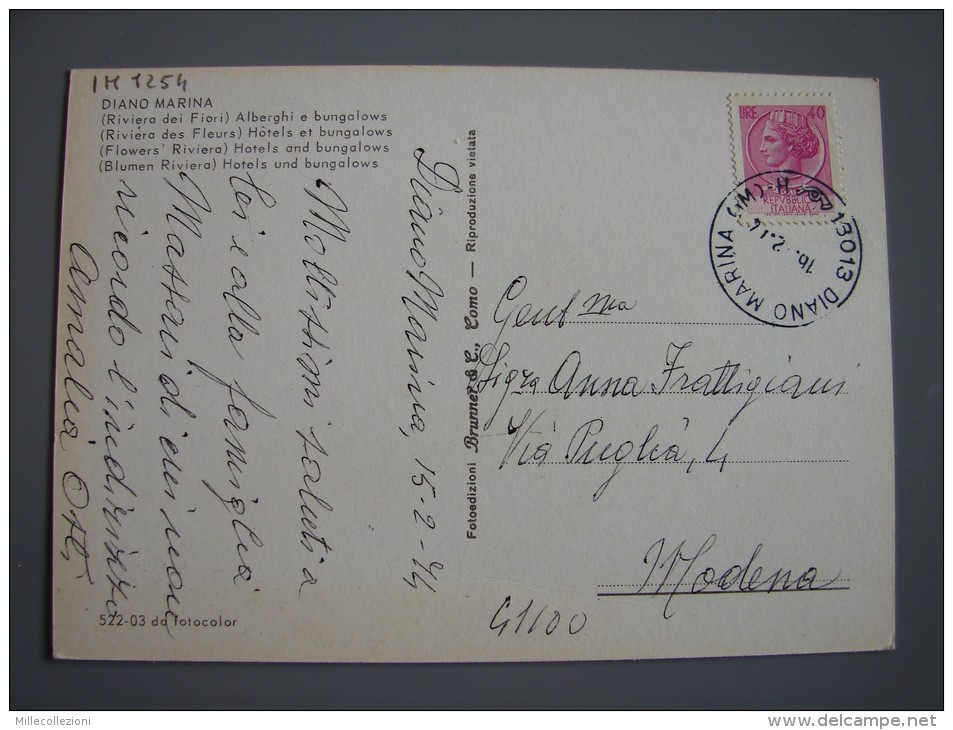 IM 1254
DIANO MARINA
(Riviera dei Fiori) Alberghi e bungalows
(Riviera des Fleurs) Hôtels et bungalows
(Flowers' Riviera) Hotels and bungalows
(Blumen Riviera) Hotels und bungalows
Diano Marina, 15-2-74
Moltissimi saluti a
lei e alla famiglia
Massari di cui non
ricordo l'indirizzo
Amalia
522-03 da fotocolor
Fotoedizioni Brunner & C., Como — Riproduzione vietata
LIRE 40
REPUBBLICA
ITALIANA
18013 DIANO MARINA (IM)-H
16.2.74
Gent ma
Sigra Anna Frattigiani
Via Puglia, 4
Modena
41100
Millecollezioni
www.delcampe.net